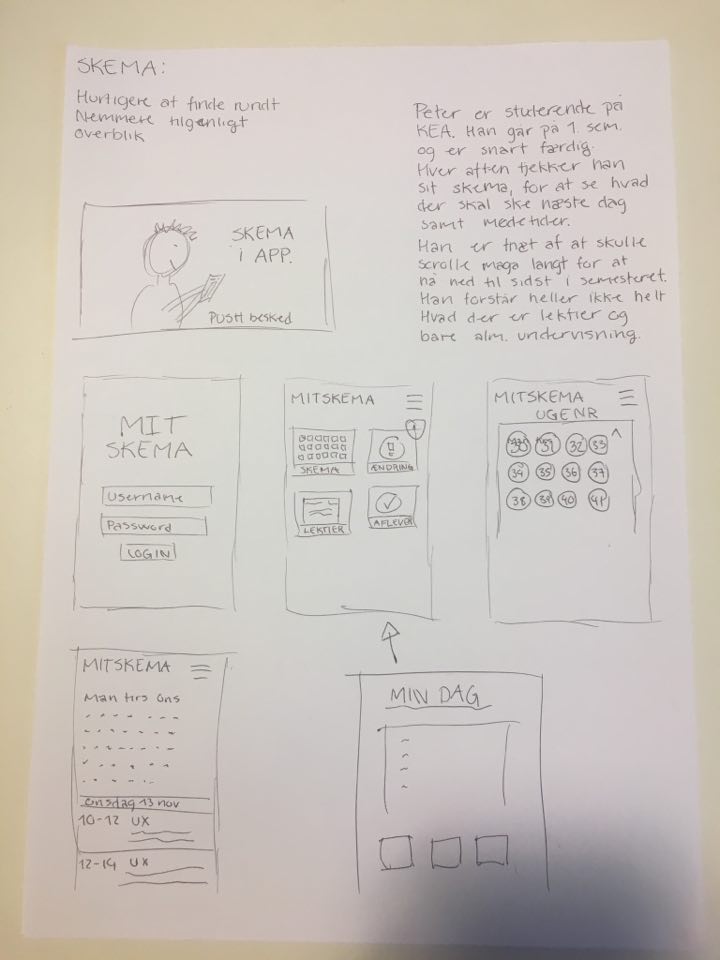 SKEMA:
Hurtigere at finde rundt
Nemmere tilgenligt
overblik
Peter er stuterende på
KEA. Han går på 1. sem.
og er snart færdig.
Hver aften tjekker han
sit skema, for at se hvad
der skal ske næste dag
samt mødetider.
Han er træt af at skulle
scrolle mega langt for at
nå ned til sidst i semesteret.
Han forstår heller ikke helt
Hvad der er lektier og
bare alm. undervisning.
SKEMA
i APP.
PUSH besked
MIT
SKEMA
Username
Password
LOGIN
MITSKEMA
SKEMA
ÆNDRING
LEKTIER
AFLEVER
MITSKEMA
UGENR
32 33
34 35 36 37
38 39 40 41
MITSKEMA
Man tirs ons
onsdag 13 nov
10-12 UX
12-14 UX
MIN DAG